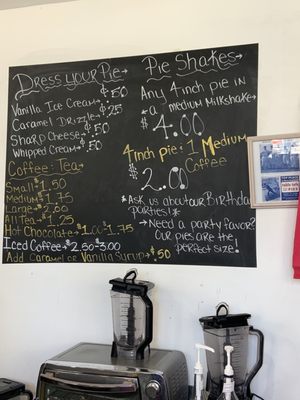 Dress your Pie
Vanilla Ice Cream $.50
Caramel Drizzle $.25
Sharp Cheese $.50
Whipped Cream $.50
Coffee: Tea
Small $1.50
Medium $1.75
Large $2.00
All Tea $1.25
Hot Chocolate $1.00 $1.75
Iced Coffee $2.50 $3.00
Add Caramel or Vanilla Syrup $.50
Pie Shakes
Any 4inch pie in
a medium Milkshake
$4.00
4inch pie: 1 Medium
Coffee
$2.00
*Ask us about our Birthday
parties!*
Need a party favor?
Our pies are the
perfect size!